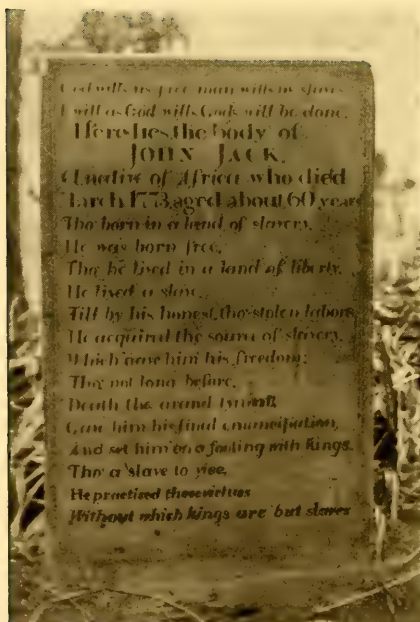 God wills us free man wills us slaves
I will as God wills Gods will be done.
Here lies the body of
JOHN JACK.
A native of Africa who died
March 1773, aged about 60 years
Tho born in a land of slavery,
He was born free,
Tho he lived in a land of liberty,
He lived a slave,
Till by his honest, tho stolen labors,
He acquired the source of slavery,
Which gave him his freedom;
Tho not long before,
Death the grand tyrant,
Gave him his final emancipation,
And set him on a footing with kings.
Tho a slave to vice,
He practised those virtues
Without which kings are but slaves